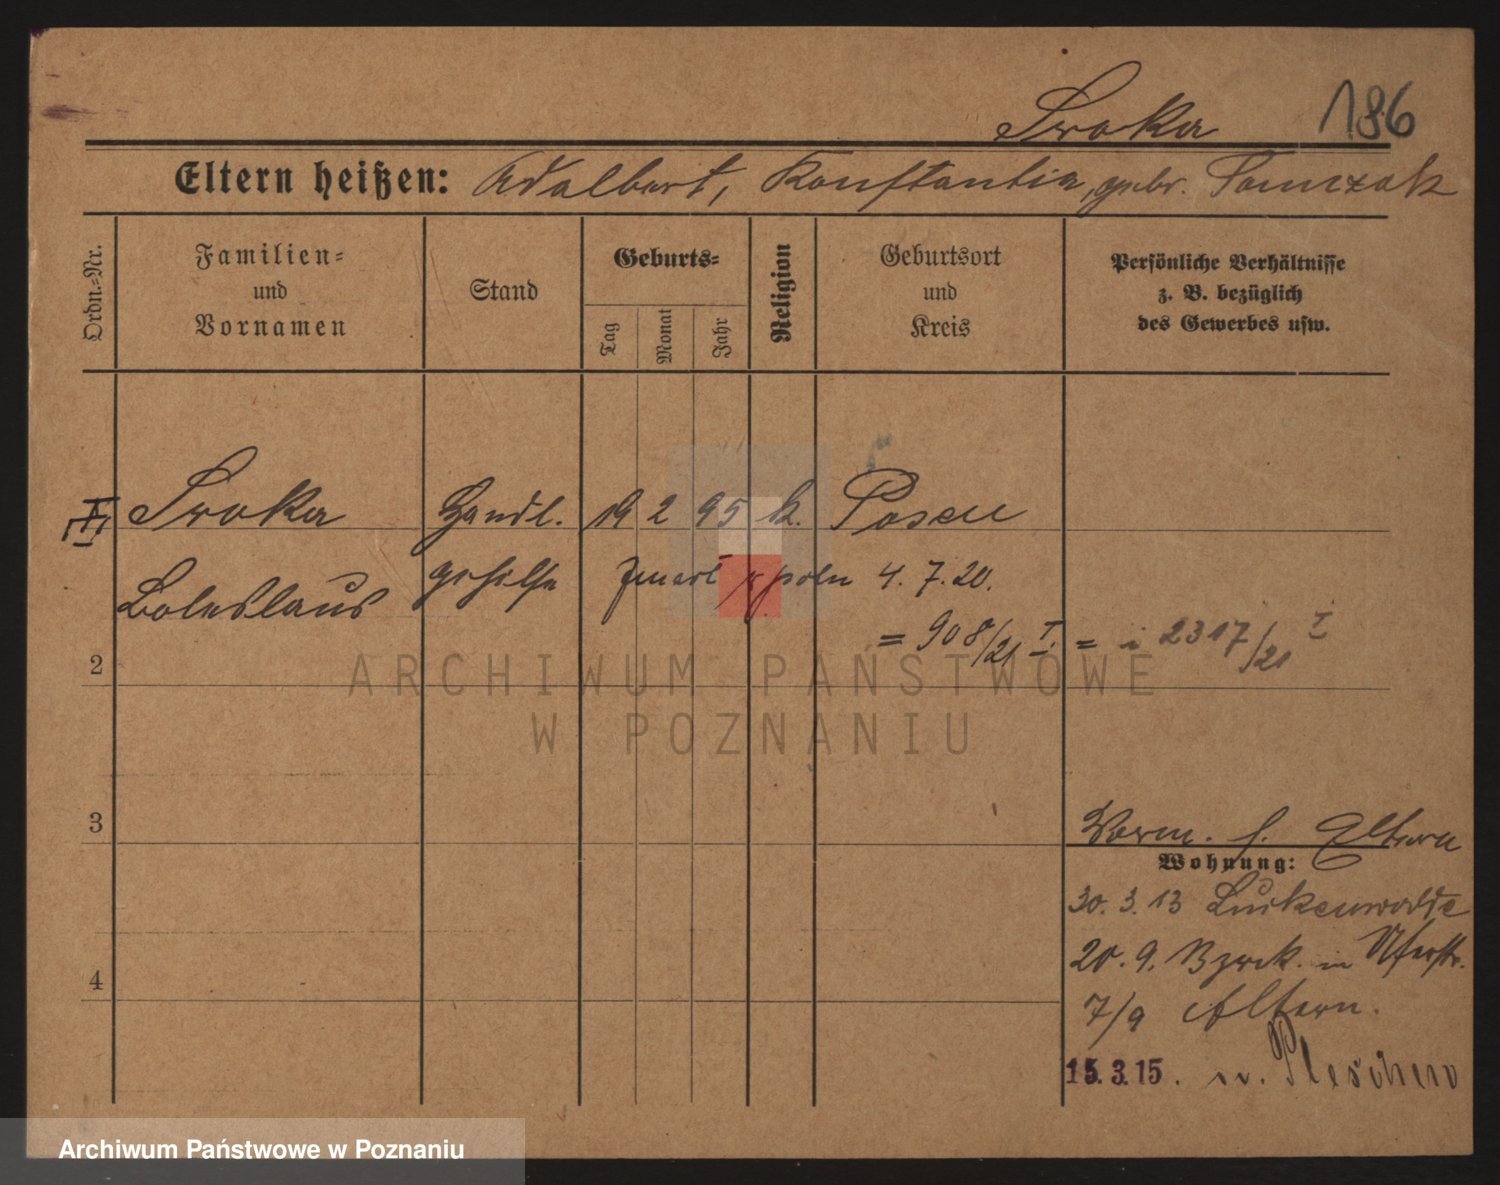 Sroka 186
Eltern heißen: Adalbert, Konstantia, gebr. Tomczak
Ordn.-Nr.
Familien-
und
Vornamen
Stand
Geburts-
Tag
Monat
Jahr
Religion
Geburtsort
und
Kreis
Persönliche Verhältnisse
z. B. bezüglich
des Gewerbes usw.
Sroka Handl. 19 2 95 k. Posen
Boleslaus gehilfe poln 4. 7. 20.
= 908/21 I = 2317/21 I
2
3
4
Vorm. s. Eltern
Wohnung:
30. 3. 13 Luckenwalde
20. 9. zrck. in Uferstr.
7/9 Eltern.
15.3.15. n. Pleschen
ARCHIWUM PAŃSTWOWE
W POZNANIU
Archiwum Państwowe w Poznaniu